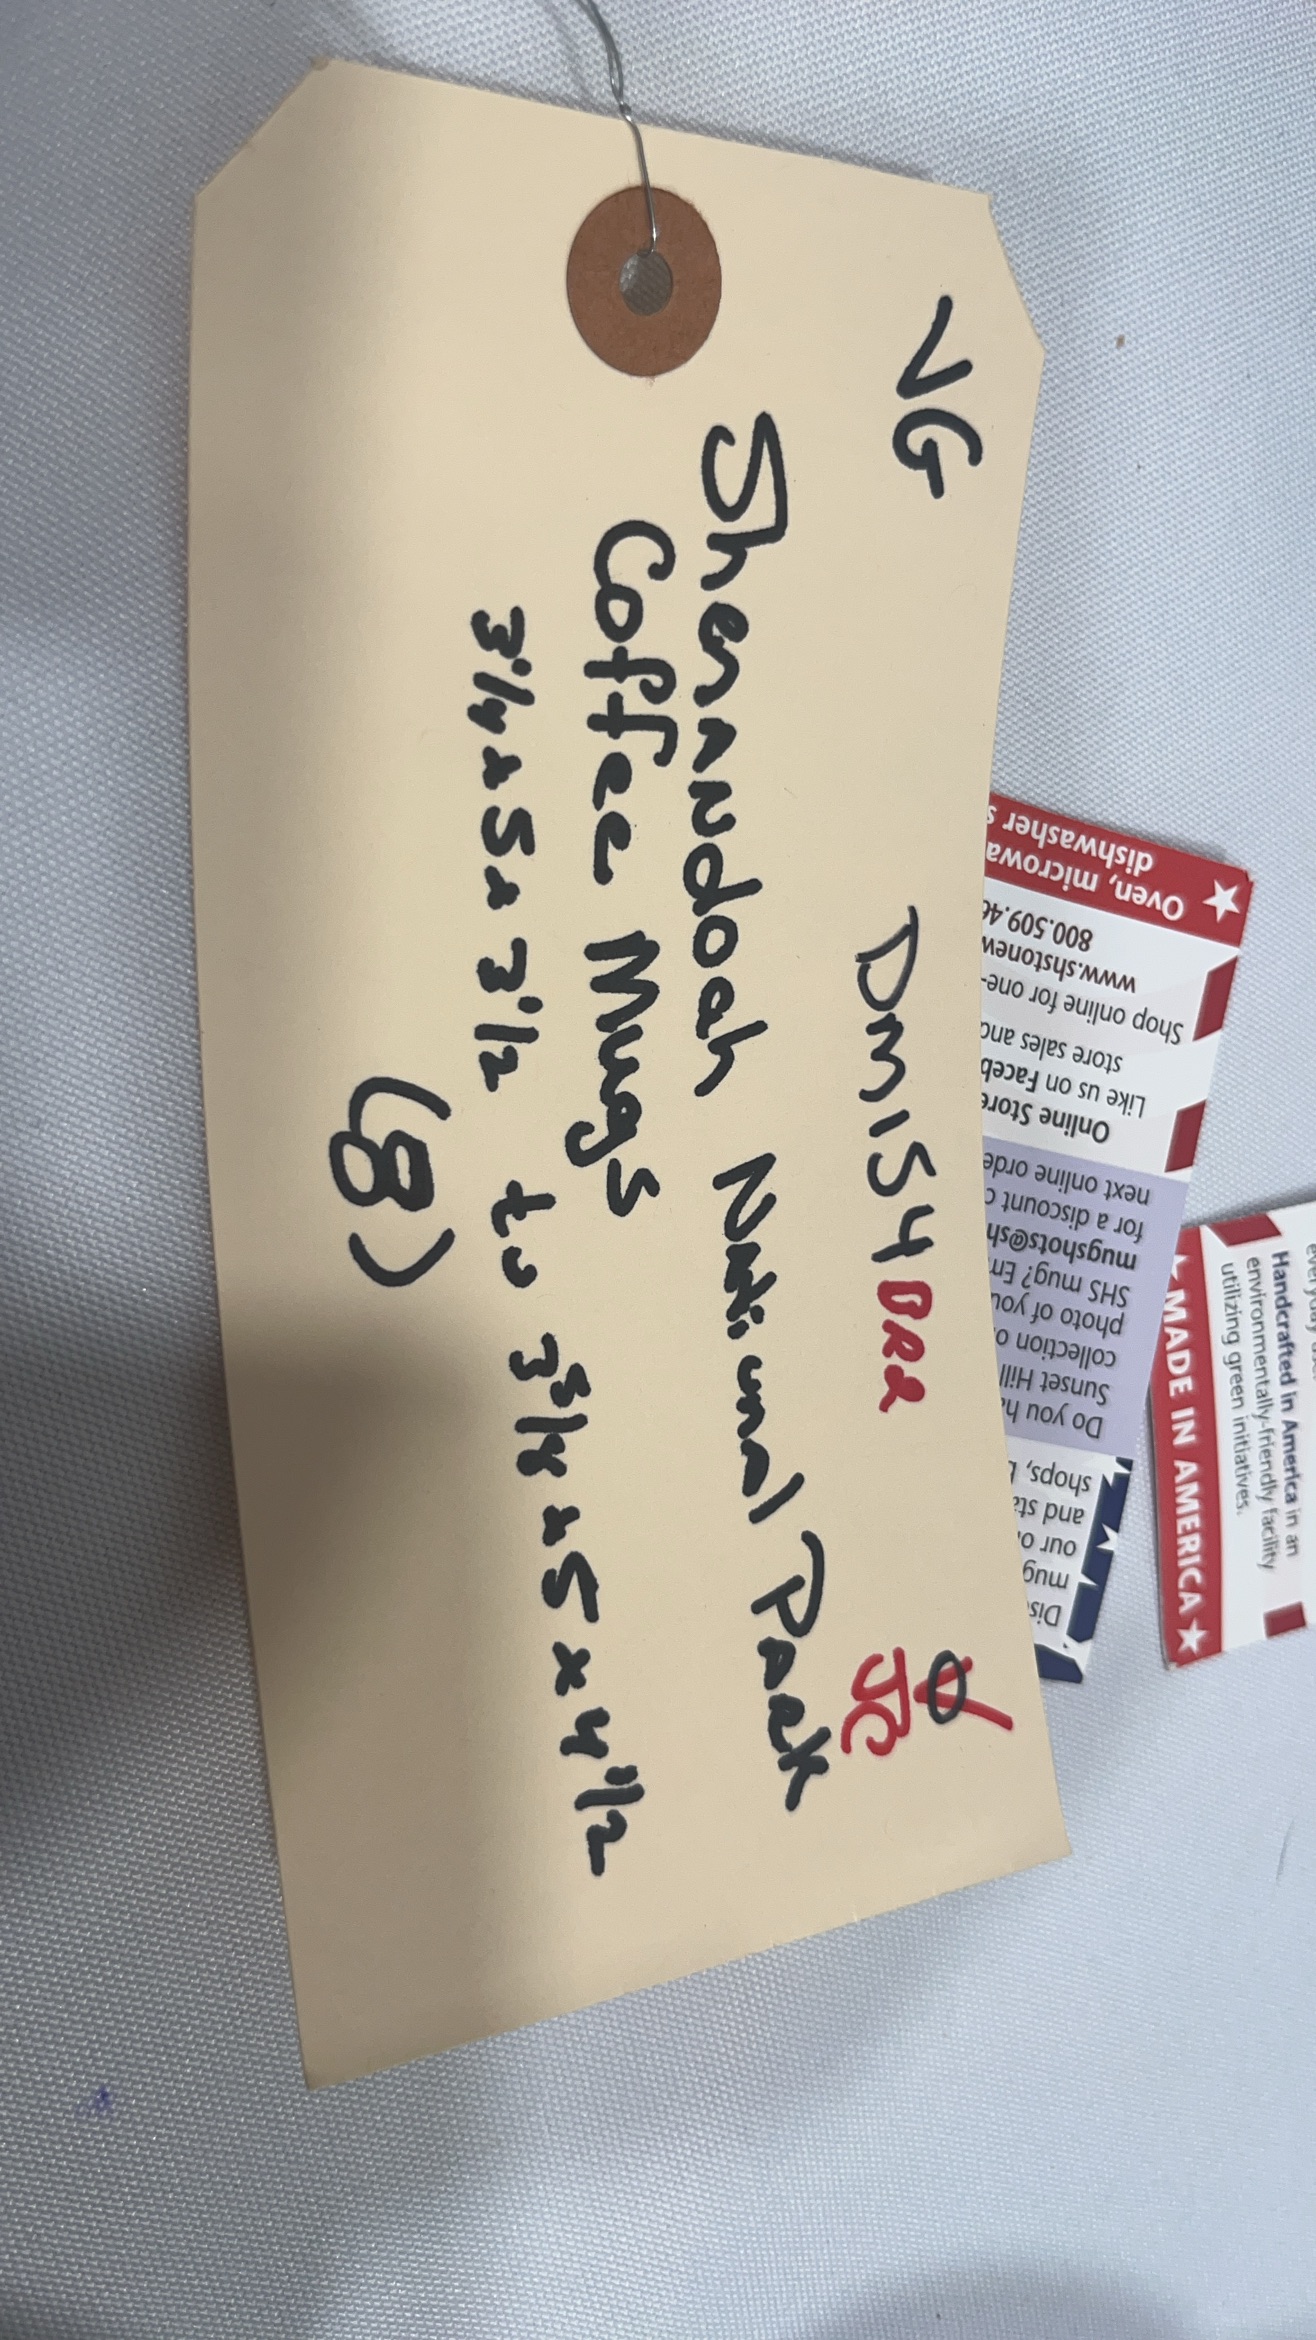 VG DM154 BR2
JC
Shenandoah National Park
Coffee Mugs
3 1/4 x 5 x 3 1/2 to 3 3/4 x 5 x 4 1/2
(8)
Oven, microwa
dishwasher s
800.509.46
www.shstonew
Shop online for one-
store sales and
Like us on Faceb
Online Store
next online orde
for a discount c
mugshots@sh
SHS mug? Em
photo of you
collection o
Sunset Hill
Do you ha
shops, b
and sta
our o
mug
Disc
★ MADE IN AMERICA ★
Handcrafted in America in an
environmentally-friendly facility
utilizing green initiatives.